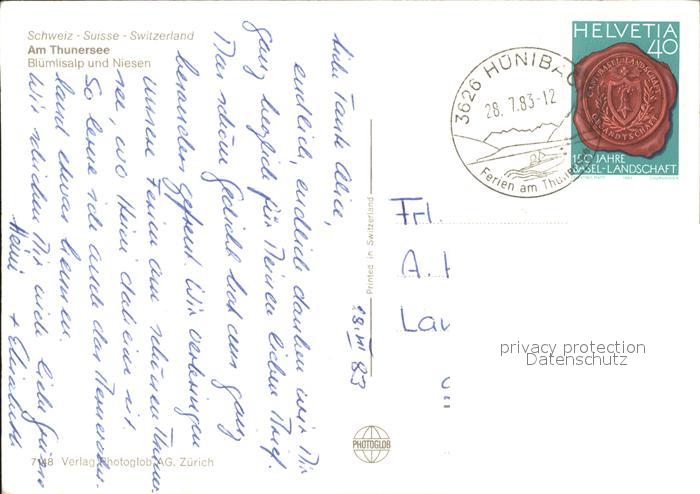 Schweiz - Suisse - Switzerland
Am Thunersee
Blümlisalp und Niesen
Liebe Tante Alice,
endlich, endlich danken wir Dir
ganz herzlich für Deinen lieben Brief.
Das schöne Gedicht hat uns ganz
besonders gefreut. Wir verbringen
unsere Ferien am schönen Thuner-
see, wo Heini daheim ist.
So lerne ich auch das Berner
land etwas kennen.
Wir schicken Dir viele liebe Grüsse
Heini + Elisabeth
28.VII 83
7148 Verlag Photoglob AG. Zürich
Printed in Switzerland
PHOTOGLOB
3626 HÜNIBAC
28.7.83-12
Ferien am Thuner
HELVETIA
40
150 JAHRE
BASEL-LANDSCHAFT
1983
Frl.
A.
Lau
privacy protection
Datenschutz